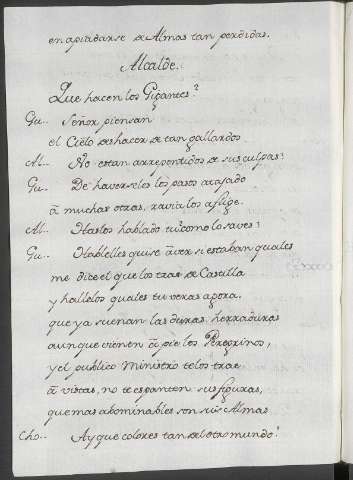 en apiadarse de Almas tan perdidas.
Alcalde.
Que hacen los Gigantes?
Gu.. Señor piensan
el Cielo deshacer de tan gallardos
Al.. No estan arrepentidos de sus culpas?
Gu.. De haverseles los pasos atajado
â muchas otras, ravia los aflige.
Al.. Haslos hablado tu? como lo saves?
Gu.. Hablelles quise â ver si estaban quales
me dice el que los trae de Castilla
y hallelos quales tu veras agora,
que ya suenan las duras herraduras
aunque vienen â pie los Peregrinos,
y el publico Ministro telos trae
â vistas, no te espanten sus figuras,
que mas abominables son sus Almas
Cho.. Ay que colores tan del otro mundo!